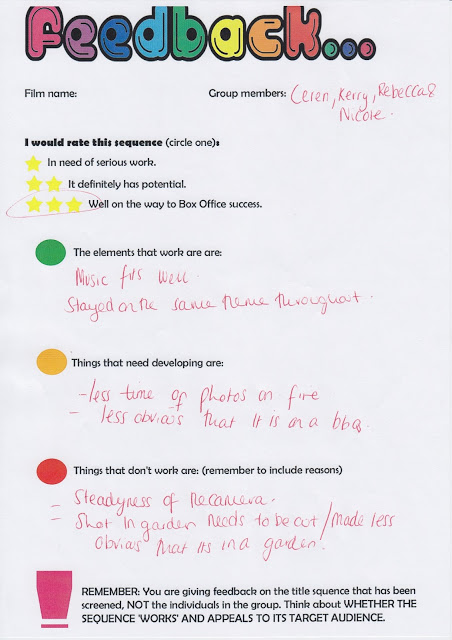 Feedback...
Film name:
Group members: Ceren, Kerry, Rebecca &
Nicole.
I would rate this sequence (circle one):
In need of serious work.
It definitely has potential.
Well on the way to Box Office success.
The elements that work are are:
Music fits well.
Stayed on the same theme throughout.
Things that need developing are:
- less time of photos on fire
- less obvious that it is on a bbq.
Things that don't work are: (remember to include reasons)
- Steadyness of the camera.
- Shot in garden needs to be cut / made less
obvious that its in a garden.
REMEMBER: You are giving feedback on the title squence that has been
screened, NOT the individuals in the group. Think about WHETHER THE
SEQUENCE 'WORKS' AND APPEALS TO ITS TARGET AUDIENCE.